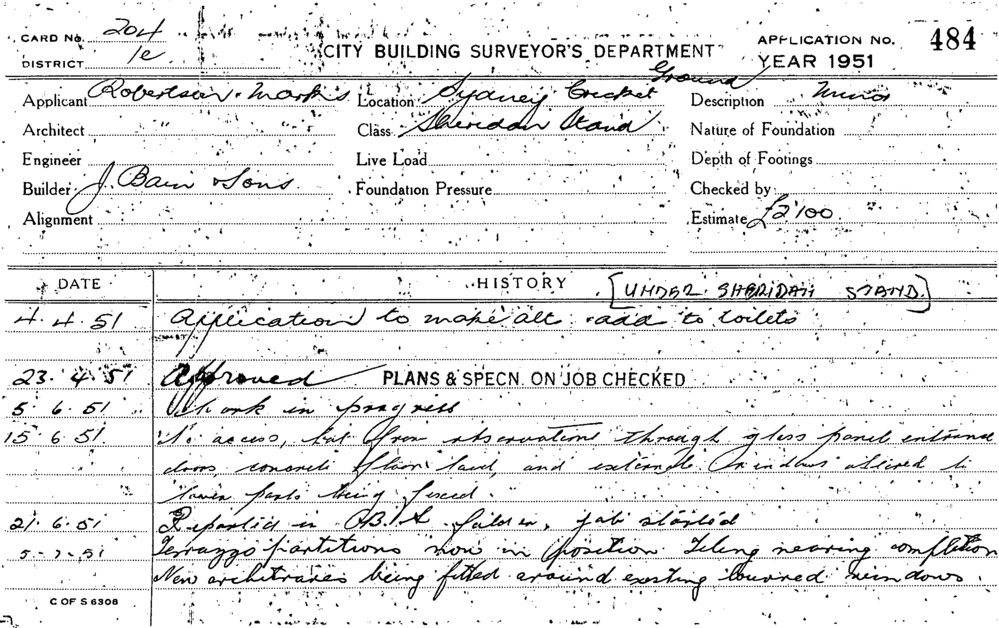 CARD No. 204
DISTRICT 1e
CITY BUILDING SURVEYOR'S DEPARTMENT
APPLICATION No. 484
YEAR 1951
Applicant Robertson & Marks
Location Sydney Cricket Ground
Description Minor
Architect
Class Sheridan Stand
Nature of Foundation
Engineer
Live Load
Depth of Footings
Builder J. Bain & Sons.
Foundation Pressure
Checked by
Alignment
Estimate £2100
DATE HISTORY [UNDER SHERIDAN STAND]
4.4.51 Application to make alt & add to toilets
23.4.51 Approved PLANS & SPECN. ON JOB CHECKED
5.6.51 Work in progress
15.6.51 No access, but from observations through glass panel entrance
doors, concrete floors laid, and external windows altered &
lower parts being fixed.
21.6.51 Reported in folder, job started
5.7.51 Terrazzo partitions now in position. Tiling nearing completion
New architraves being fitted around existing louvred windows.
C OF S 6308